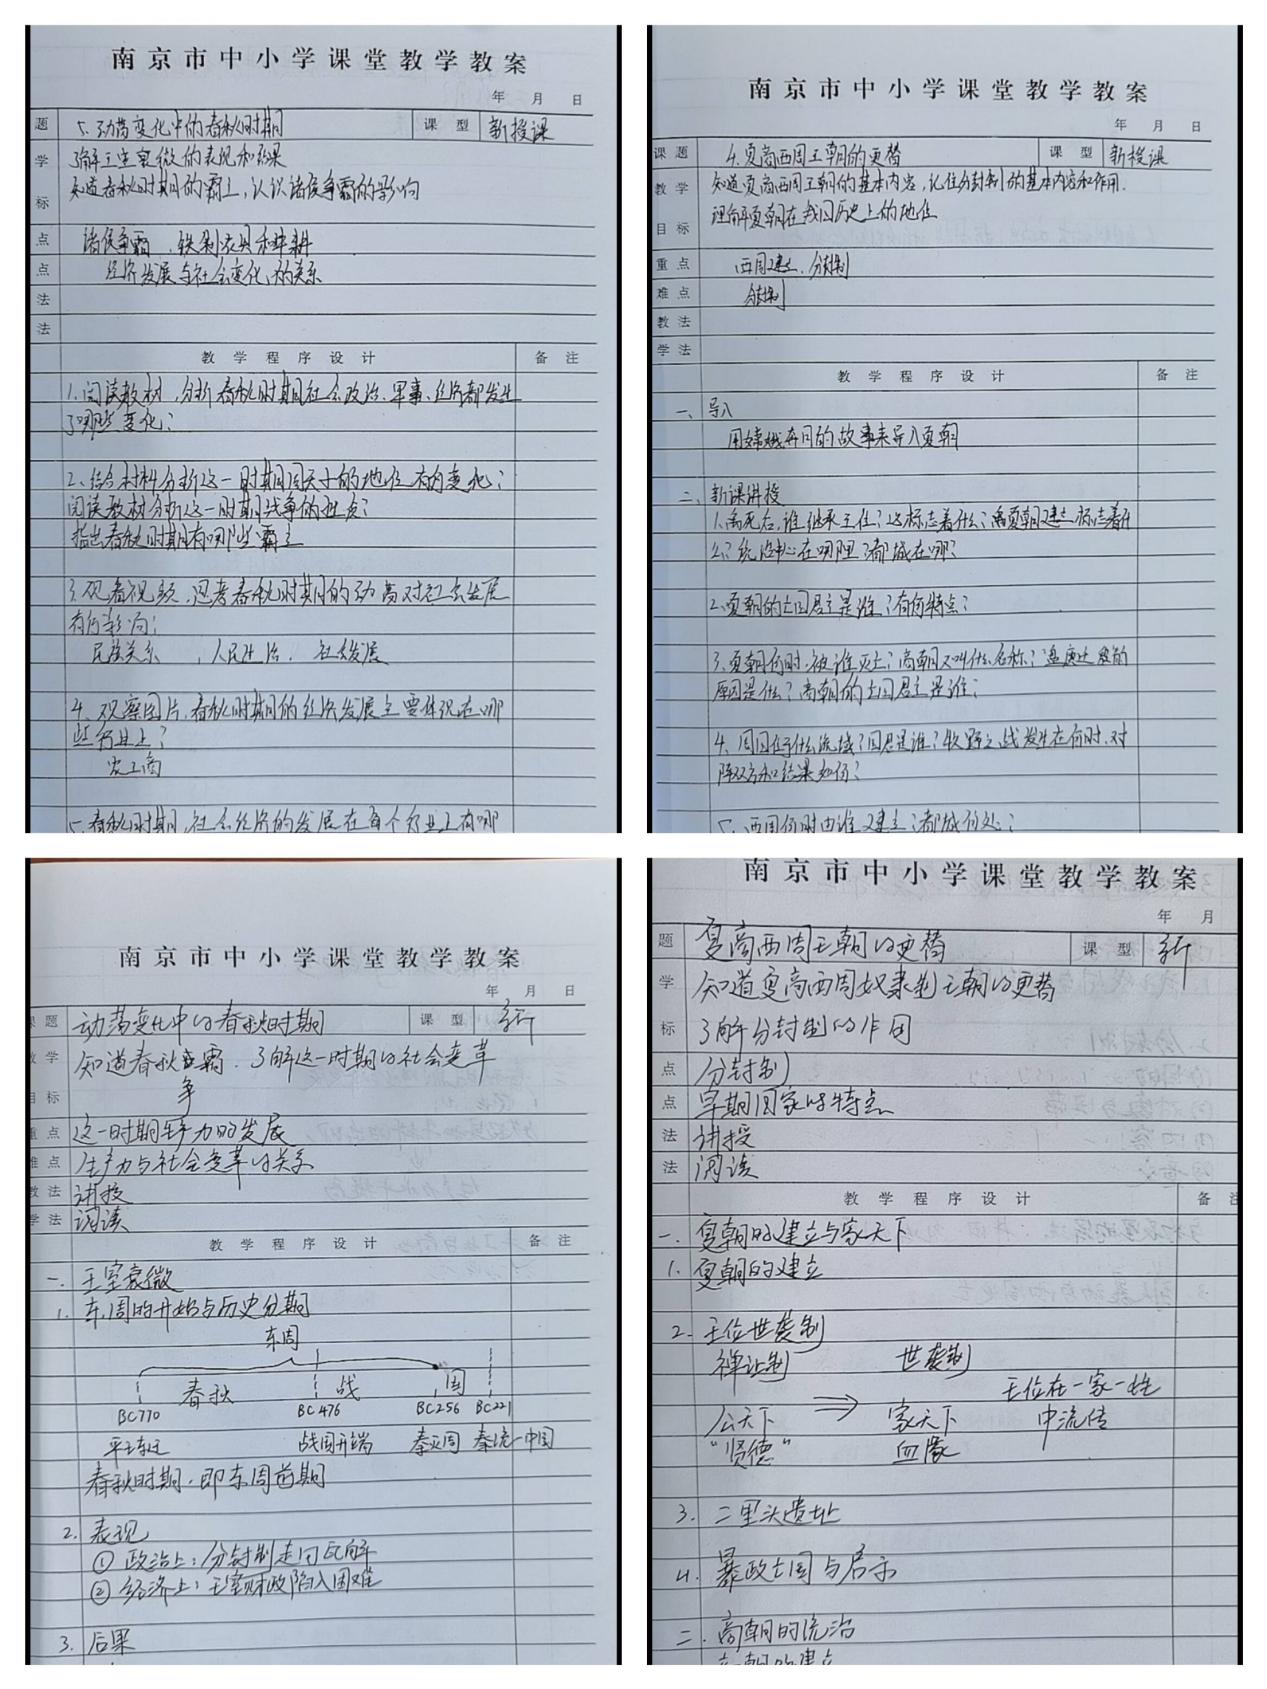 南京市中小学课堂教学教案
年 月 日
题 5. 动荡变化中的春秋时期 课型 新授课
学 了解王室衰微的表现和结果
知道春秋时期的霸主，认识诸侯争霸的影响
标
点 诸侯争霸、铁制农具和牛耕
点 经济发展与社会变化的关系
法
法
教学程序设计 备注
1.阅读教材，分析春秋时期社会政治、军事、经济都发生
了哪些变化？
2、结合材料分析这一时期周天子的地位有何变化？
阅读教材分析这一时期战争的特点？
指出春秋时期有哪些霸主
3.观看视频，思考春秋时期的动荡对社会发展
有何影响？
民族关系 ，人民生活． 社会发展
4、观察图片，春秋时期的经济发展主要体现在哪
些行业上？
农工商
5.春秋时期，社会经济的发展在每个行业上有哪
南京市中小学课堂教学教案
年 月 日
课题 4.夏商西周王朝的更替 课型 新授课
教学 知道夏商西周王朝的基本内容，记住分封制的基本内容和作用．
理解夏朝在我国历史上的地位
目标
重点 西周建立、分封制
难点 分封制
教法
学法
教学程序设计 备注
一、导入
用嫦娥奔月的故事来导入夏朝
二、新课讲授
1.禹死后，谁继承王位？这标志着什么？禹夏朝建立标志着什
么？统治中心在哪里？都城在哪？
2.夏朝的亡国君主是谁？有何特点？
3.夏朝何时被谁灭亡？商朝又叫什么名称？盘庚迁殷的
原因是什么？商朝的亡国君主是谁？
4、周国在于什么流域？国君是谁？牧野之战发生在何时．对
阵双方和结果如何？
5、西周何时由谁建立？都城何处？
南京市中小学课堂教学教案
年 月 日
课题 动荡变化中的春秋时期 课型 新
教学 知道春秋争霸．了解这一时期的社会变革
目标
重点 这一时期生产力的发展
难点 生产力与社会变革的关系
教法 讲授
学法 阅读
教学程序设计 备注
一. 王室衰微
1. 东周的开始与历史分期
东周
春秋 战 国
BC770 BC476 BC256 BC221
平王东迁 战国开端 秦灭周 秦统一中国
春秋时期．即东周前期
2. 表现
① 政治上：分封制走向瓦解
② 经济上：王室财政陷入困难
3. 后果
南京市中小学课堂教学教案
年 月
题 夏商西周王朝的更替 课型 新
学 知道夏商西周奴隶制王朝的更替
标 了解分封制的作用
点 分封制
点 早期国家的特点
法 讲授
法 阅读
教学程序设计 备注
一. 夏朝的建立与家天下
1. 夏朝的建立
2. 王位世袭制
禅让制 世袭制
王位在一家一姓
公天下 ⟹ 家天下 中流传
“贤德” 血缘
3. 二里头遗址
4. 暴政亡国与启示
二. 商朝的统治